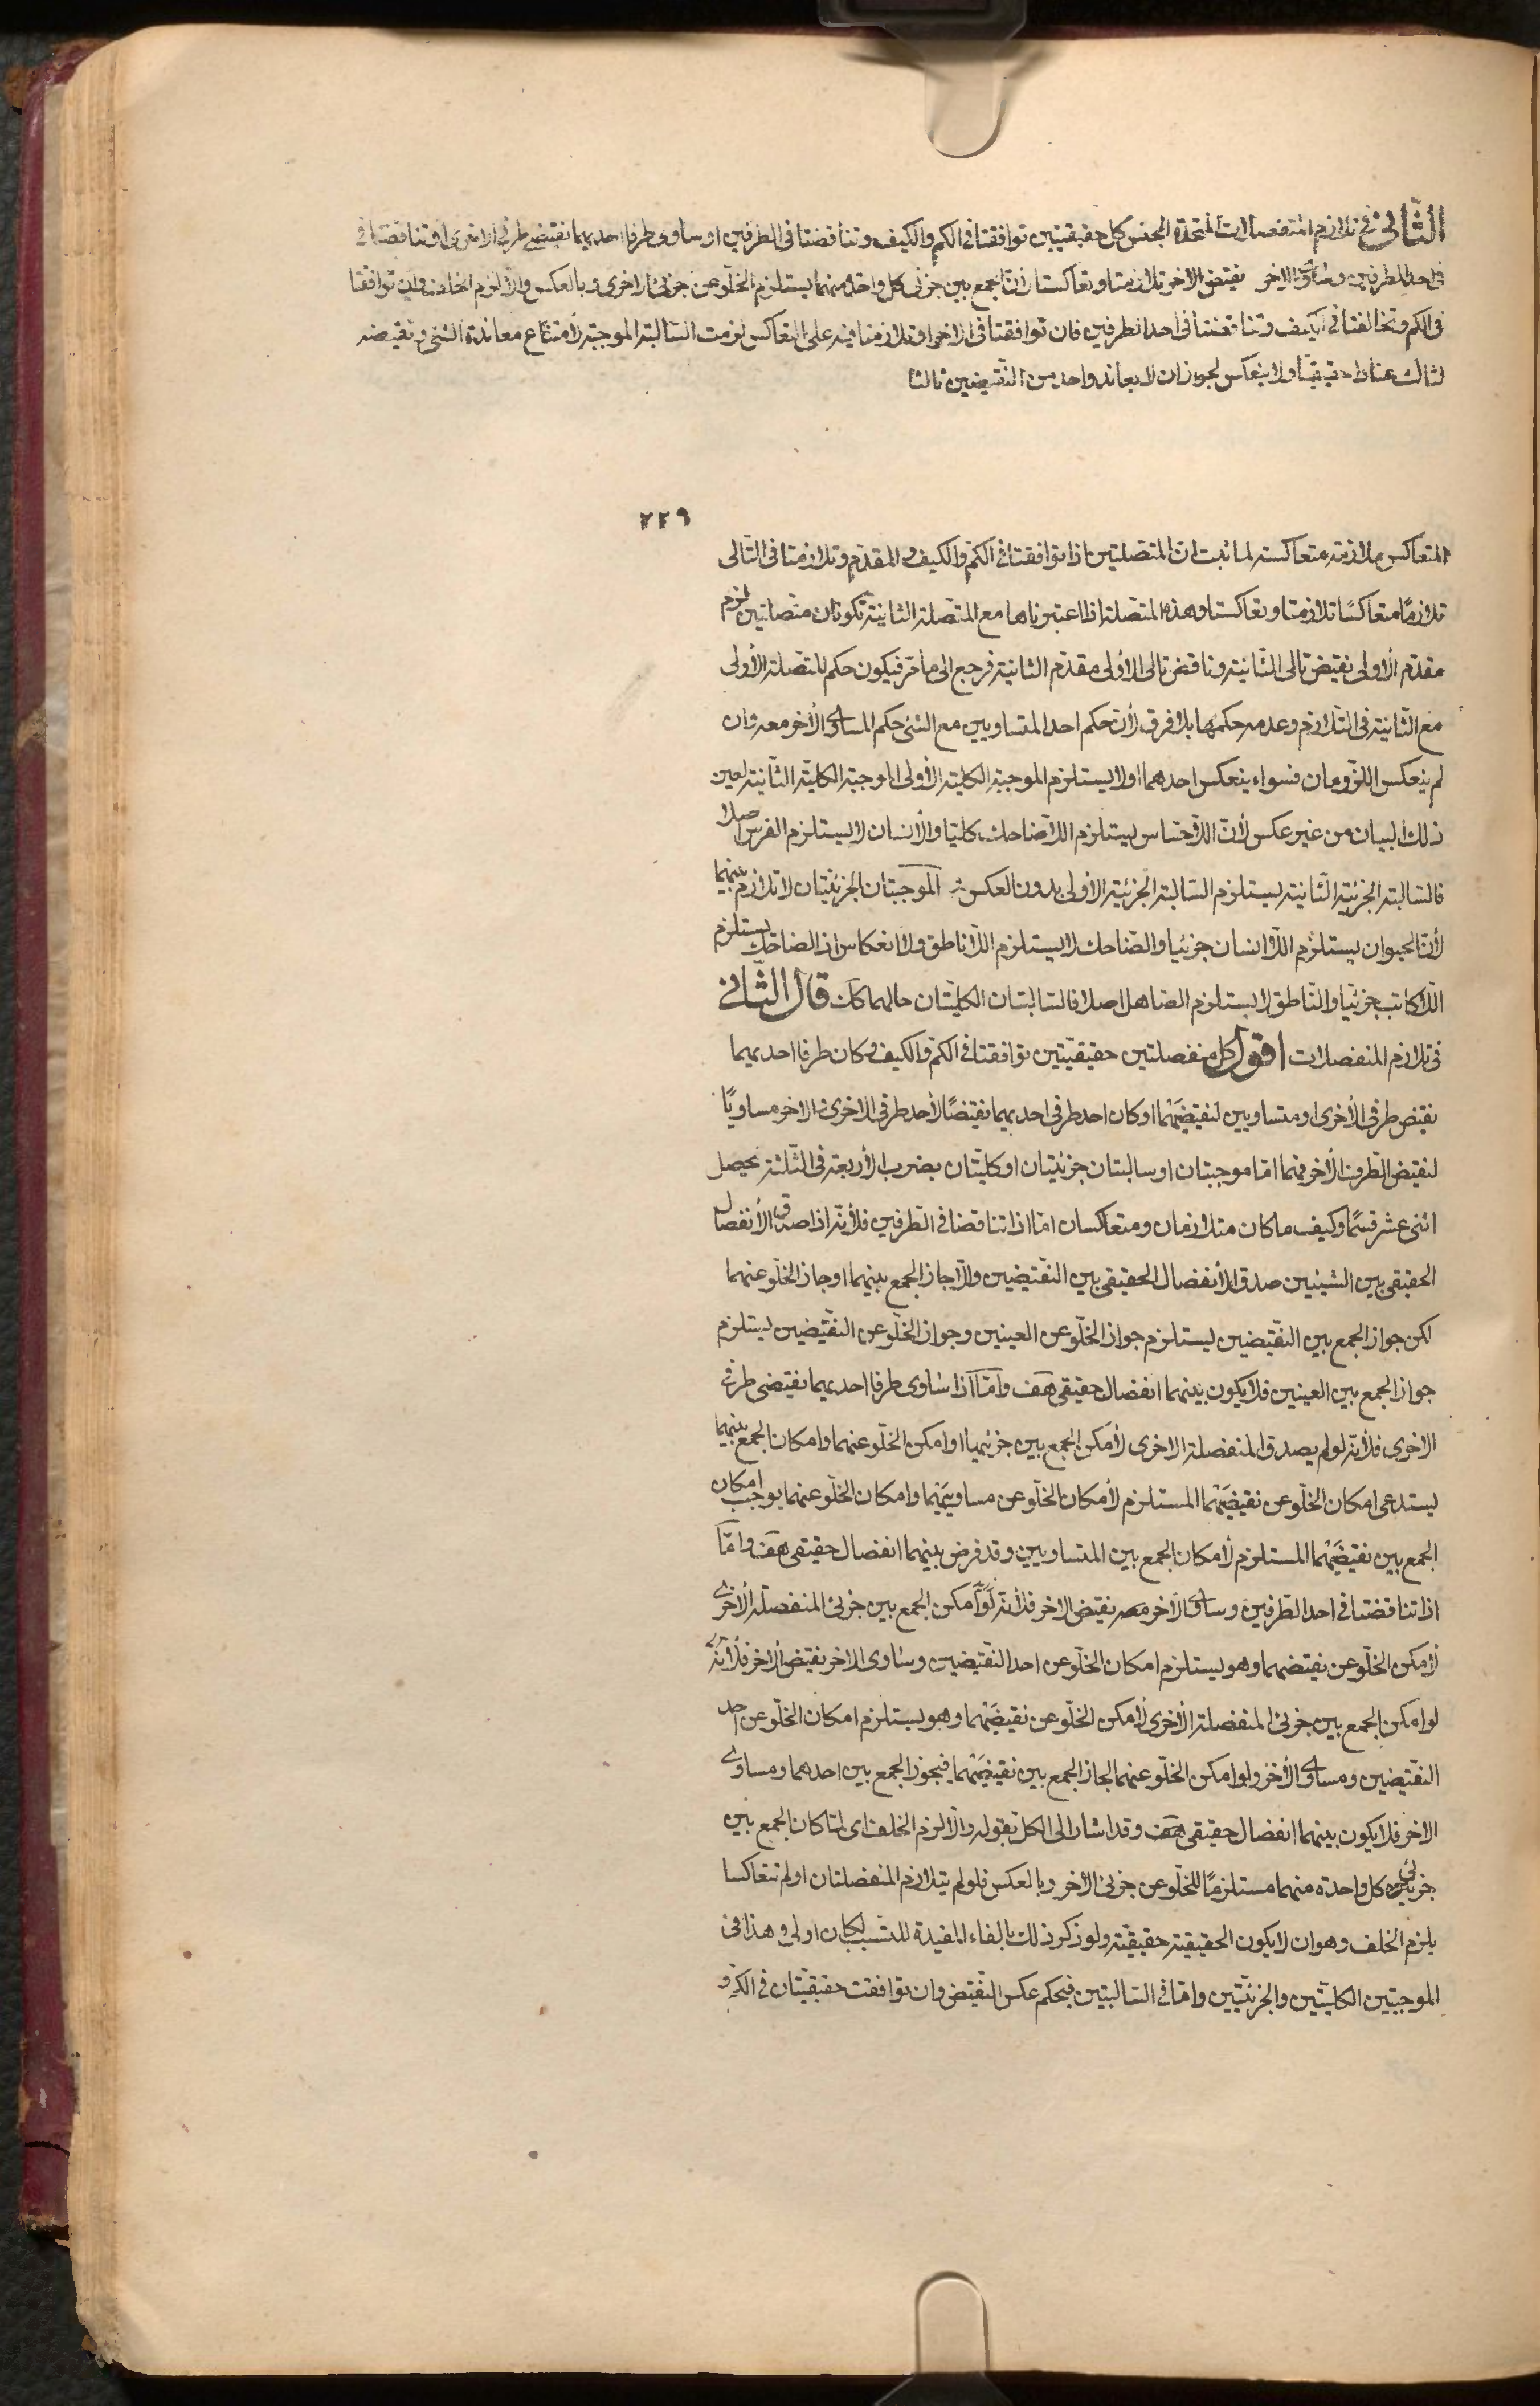 الثانى فى تلازم المنفصلات المتحدة الجنس كل حقيقيتين توافقتا فى الكم والكيف وتناقضتا فى الطرفين او ساوى طرفا احديهما نقيضى طرفى الاخرى او تناقضتا فى
فى احد الطرفين وساوى الاخر نقيض الاخر تلازمتا وتعاكستا لان الجمع بين جزئى كل واحدة منهما يستلزم الخلو عن جزئى الاخرى وبالعكس والا لزم الخلف وان توافقتا
فى الكم وتخالفتا فى الكيف وتناقضتا فى احد الطرفين فان توافقتا فى الاخر او تلازمتا فيه على التعاكس لزمت السالبة الموجبة لامتناع معاندة الشئ ونقيضه
لثالث عنادا حقيقيا ولا ينعكس لجواز ان لا يعاند واحد من النقيضين ثالثا
٢٢٩
المتعاكس ملازمة متعاكسة لما ثبت ان المتصلتين اذا توافقتا فى الكم والكيف والمقدم وتلازمتا فى التالى
تلازمًا متعاكسًا تلازمتا وتعاكستا وهذه المتصلة اذا اعتبرناها مع المتصلة الثانية تكونان متصلتين لزم
مقدم الاولى نقيض تالى الثانية وناقض تالى الاولى مقدم الثانية فرجع الى ما مر فيكون حكم المتصلة الاولى
مع الثانية فى التلازم وعدمه حكمها بلا فرق لان حكم احد المتساويين مع الشئ حكم المساوى الاخر معه وان
لم ينعكس اللزومان فسواء ينعكس احدهما اولا يستلزم الموجبة الكلية الاولى الموجبة الكلية الثانية لعين
ذلك البيان من غير عكس لان اللاحساس يستلزم اللاضاحك كليا والانسان لا يستلزم الفرس اصلا
فالسالبة الجزئية الثانية يستلزم السالبة الجزئية الاولى بدون العكس الموجبتان الجزئيتان لا تلازم بينهما
لان الحيوان يستلزم اللاانسان جزئيا والضاحك لا يستلزم اللاناطق ولا انعكاس اذ الضاحك يستلزم
اللاكاتب جزئيا والناطق لا يستلزم الصاهل اصلا فالسالبتان الكليتان حالهما كان قال الثانى
فى تلازم المنفصلات اقول كل منفصلتين حقيقيتين توافقتا فى الكم والكيف وكان طرفا احديهما
نقيض طرفى الاخرى او متساويين لنقيضيهما او كان احد طرفى احديهما نقيضًا لاحد طرفى الاخرى والاخر مساويًا
لنقيض الطرف الاخر فهما اما موجبتان او سالبتان جزئيتان او كليتان بضرب الاربعة فى الثلثة يحصل
اثنى عشر قسمًا وكيف ما كان متلازمان ومتعاكسان اما اذا تناقضا فى الطرفين فلانه اذا صدق الانفصال
الحقيقى بين الشيئين صدق الانفصال الحقيقى بين النقيضين والا جاز الجمع بينهما او جاز الخلو عنهما
لكن جواز الجمع بين النقيضين يستلزم جواز الخلو عن العينين وجواز الخلو عن النقيضين يستلزم
جواز الجمع بين العينين فلا يكون بينهما انفصال حقيقى هف واما اذا ساوى طرفا احديهما نقيضى طرفى
الاخرى فلانه لو لم يصدق المنفصلة الاخرى لامكن الجمع بين جزئيها او امكن الخلو عنهما وامكان الجمع بينهما
يستدعى امكان الخلو عن نقيضيهما المستلزم لامكان الخلو عن مساوييهما وامكان الخلو عنهما يوجب امكان
الجمع بين نقيضيهما المستلزم لامكان الجمع بين المتساويين وقد فرض بينهما انفصال حقيقى هف واما
اذا تناقضتا فى احد الطرفين وساوى الاخر نقيض الاخر فلانه لو امكن الجمع بين جزئى المنفصلة الاخرى
لامكن الخلو عن نقيضهما وهو يستلزم امكان الخلو عن احد النقيضين وساوى الاخر نقيض الاخر فلانه
لو امكن الجمع بين جزئى المنفصلة الاخرى لامكن الخلو عن نقيضيهما وهو يستلزم امكان الخلو عن احد
النقيضين ومساوى الاخر ولو امكن الخلو عنهما لجاز الجمع بين نقيضيهما فيجوز الجمع بين احدهما ومساوى
الاخر فلا يكون بينهما انفصال حقيقى هف وقد اشار الى الكل بقوله والا لزم الخلف اى لما كان الجمع بين
جزئى كل واحدة منهما مستلزمًا للخلو عن جزئى الاخر وبالعكس فلو لم يتلازم المنفصلتان او لم تتعاكسا
يلزم الخلف وهو ان لا يكون الحقيقية حقيقية ولو ذكر ذلك بالفاء المفيدة للتسبب لكان اولى وهذا فى
الموجبتين الكليتين والجزئيتين واما فى السالبتين فبحكم عكس النقيض وان توافقت حقيقيتان فى الكم و